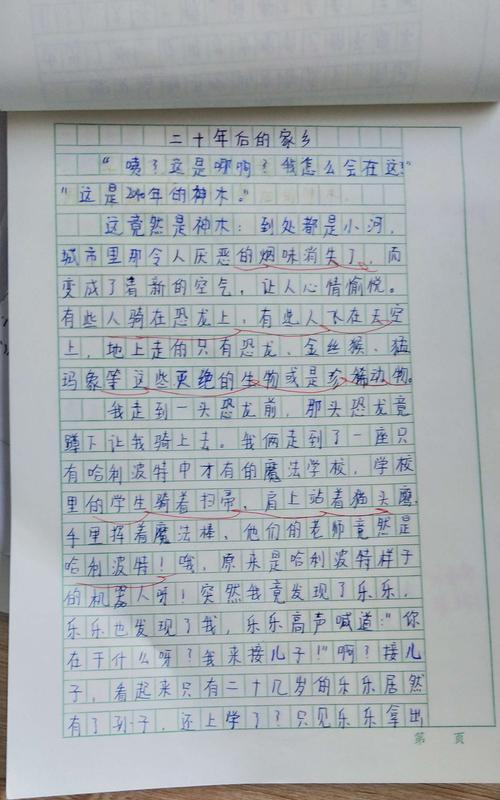 二十年后的家乡
“咦？这是哪啊？我怎么会在这？”
“这是2040年的神木。”
这竟然是神木：到处都是小河，
城市里那令人厌恶的烟味消失了，而
变成了清新的空气，让人心情愉悦。
有些人骑在恐龙上，有些人飞在天空
上，地上走的只有恐龙、金丝猴、猛
玛象等这些灭绝的生物或是珍稀动物。
我走到一头恐龙前，那头恐龙竟
蹲下让我骑上去。我俩走到了一座只
有哈利波特中才有的魔法学校，学校
里的学生骑着扫帚，肩上站着猫头鹰
手里挥着魔法棒，他们的老师竟然是
哈利波特！哦，原来是哈利波特样子
的机器人呀！突然我竟发现了乐乐，
乐乐也发现了我，乐乐高声喊道：“你
在干什么呀？我来接儿子！”啊？接儿
子，看起来只有二十几岁的乐乐居然
有了孙子，还上学了？只见乐乐拿出
第 页